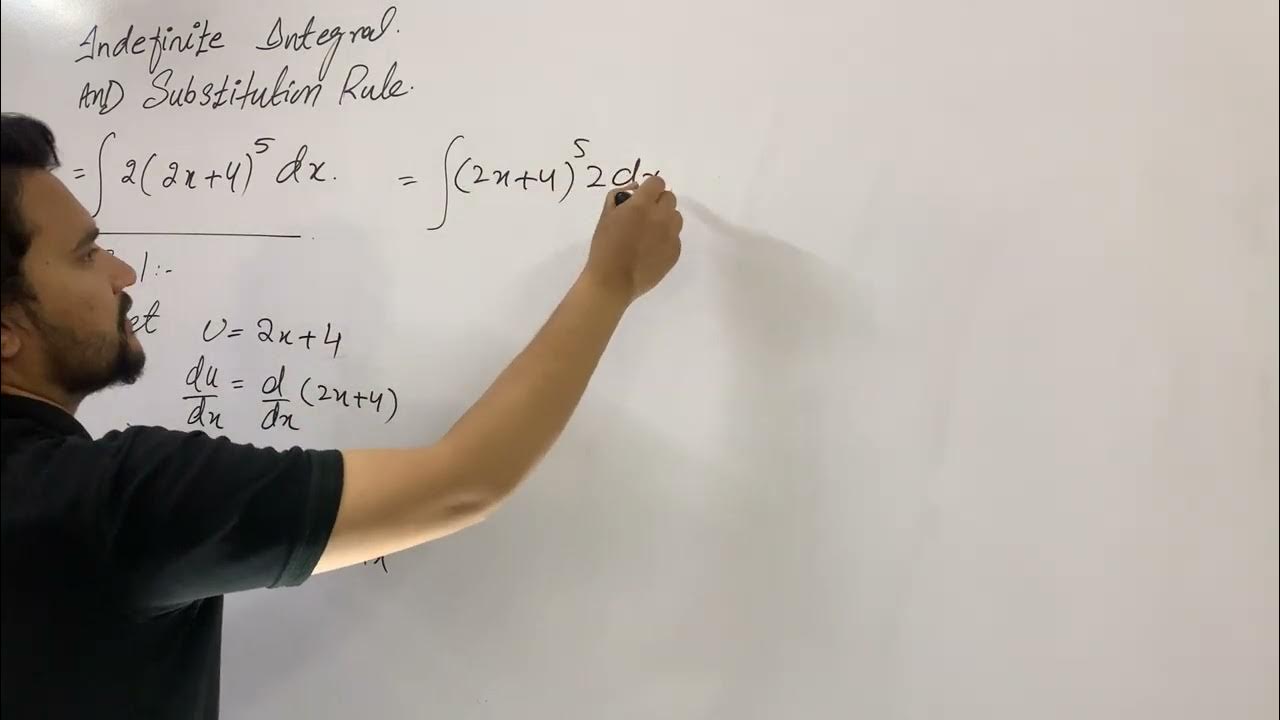 Indefinite Integral.
AND Substitution Rule.
= ∫ 2(2x+4)^5 dx. = ∫ (2x+4)^5 2dx
1:-
U = 2x+4
du/dx = d/dx (2x+4)